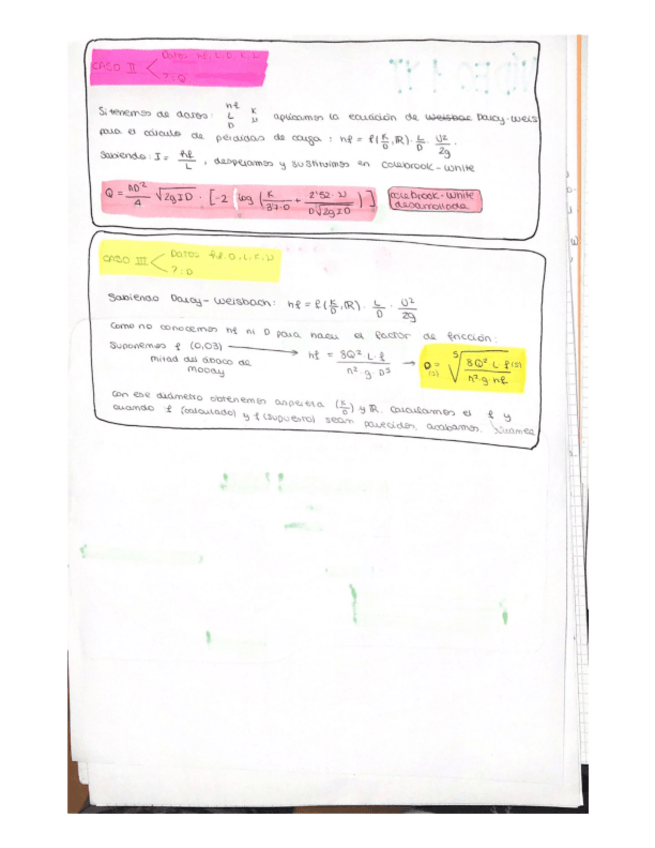 CASO II < Datos: hf, L, D, K, ν
?: Q
Si tenemos de datos: hf L D K ν aplicamos la ecuación de Weisbac Darcy-Weis
para el cálculo de pérdidas de carga: hf = f(K/D, R) · L/D · U²/2g.
Sabiendo: I = hf/L, despejamos y sustituimos en Colebrook-White
Q = ΠD²/4 √2gID · [-2 log (K/3'7·D + 2'52·ν/D√2gID)] Colebrook-White desarrollada
CASO III < Datos: Q, L, K, ν
?: D
Sabiendo Darcy-Weisbach: hf = f(K/D, R) · L/D · U²/2g
Como no conocemos hf ni D para hacer el factor de fricción:
Suponemos f (0,03) → hf = 8Q²·L·f/π²·g·D⁵ → D(s) = ⁵√8Q²·L·f(s)/π²·g·hf
mitad del ábaco de
moody
Con ese diámetro obtenemos aspereza (K/D) y R. Calculamos el f y
cuando f (calculado) y f (supuesto) sean parecidos, acabamos.